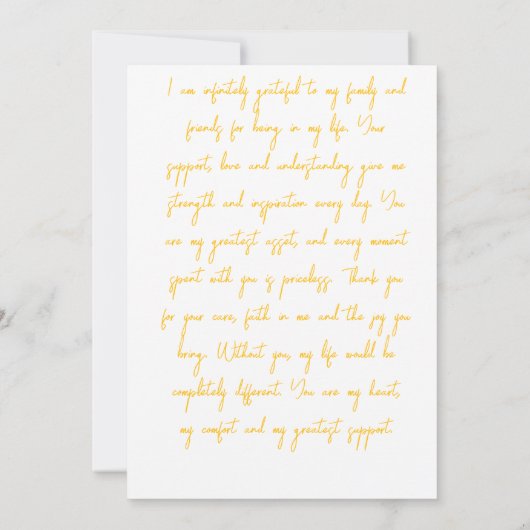 I am infinitely grateful to my family and
friends for being in my life. Your
support, love and understanding give me
strength and inspiration every day. You
are my greatest asset, and every moment
spent with you is priceless. Thank you
for your care, faith in me and the joy you
bring. Without you, my life would be
completely different. You are my heart,
my comfort and my greatest support.